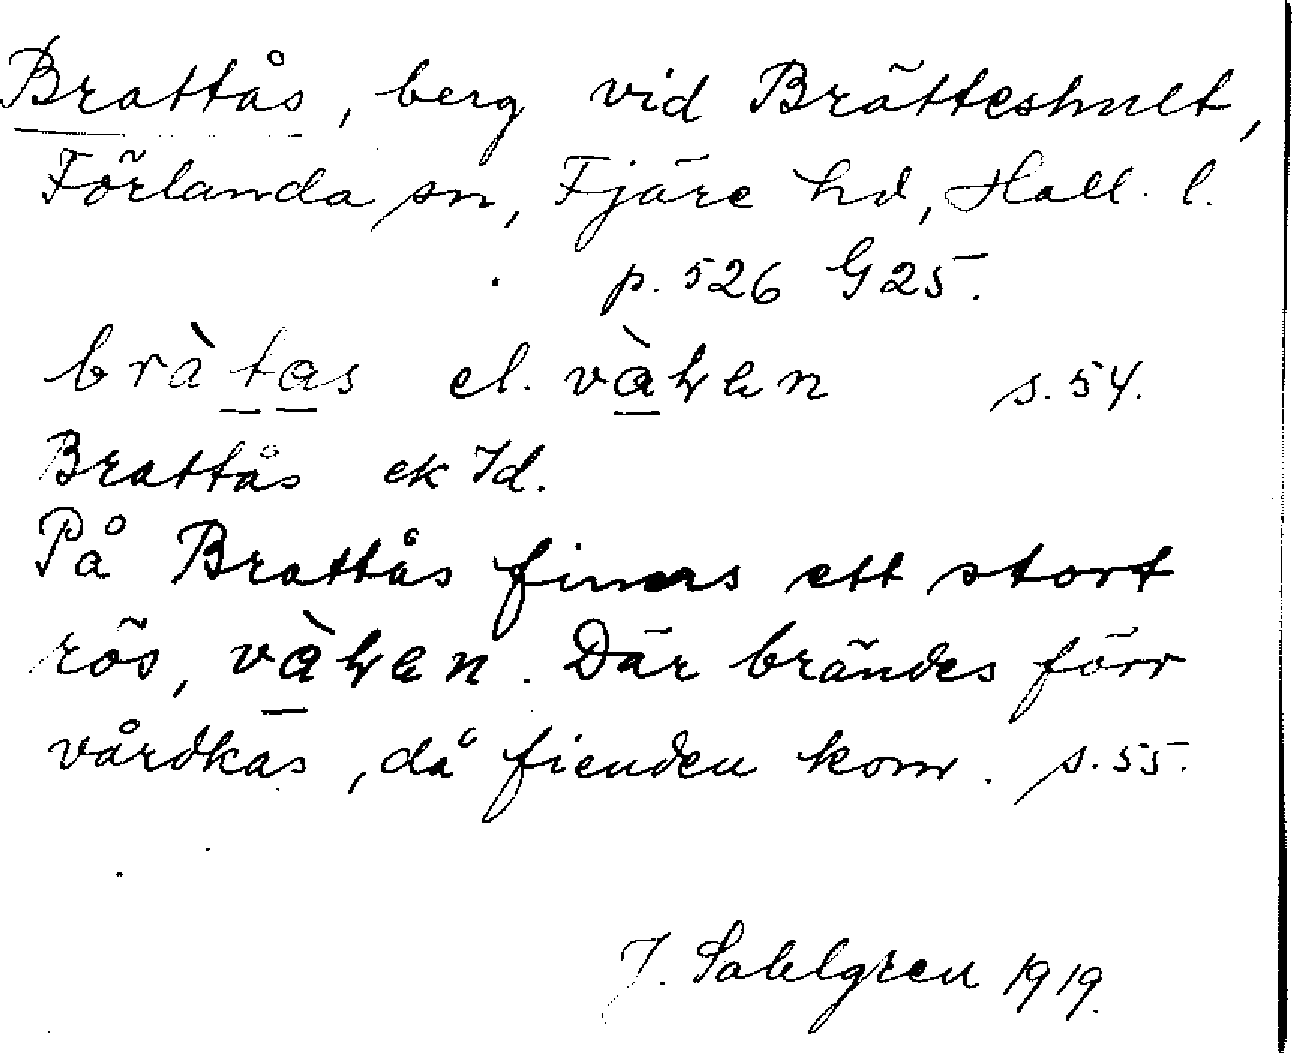 Brattås, berg vid Brätteshult,
Förlanda sn, Fjäre hd, Hall. l.
p. 526 G 25.
bràtas el. vàkan s. 54.
Brattås ek Id.
På Brattås finnes ett stort
rös, vàkan. Där brändes förr
vårdkas, då fienden kom. s. 55.
J. Sahlgren 1919.